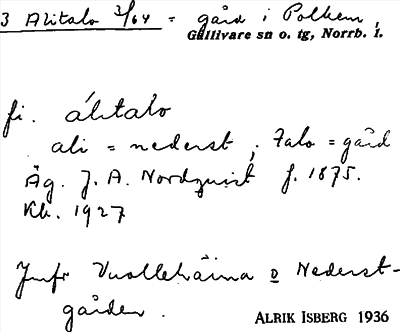 3 Alitalo 3/64 = gård i Polkem,
Gällivare sn o. tg, Norrb. l.
fi. álitalo
ali = nederst ; talo = gård
Äg. J. A. Nordquist f. 1875.
Kh. 1927
Jmfr Vuollehäima o Nederst-
gården.
ALRIK ISBERG 1936